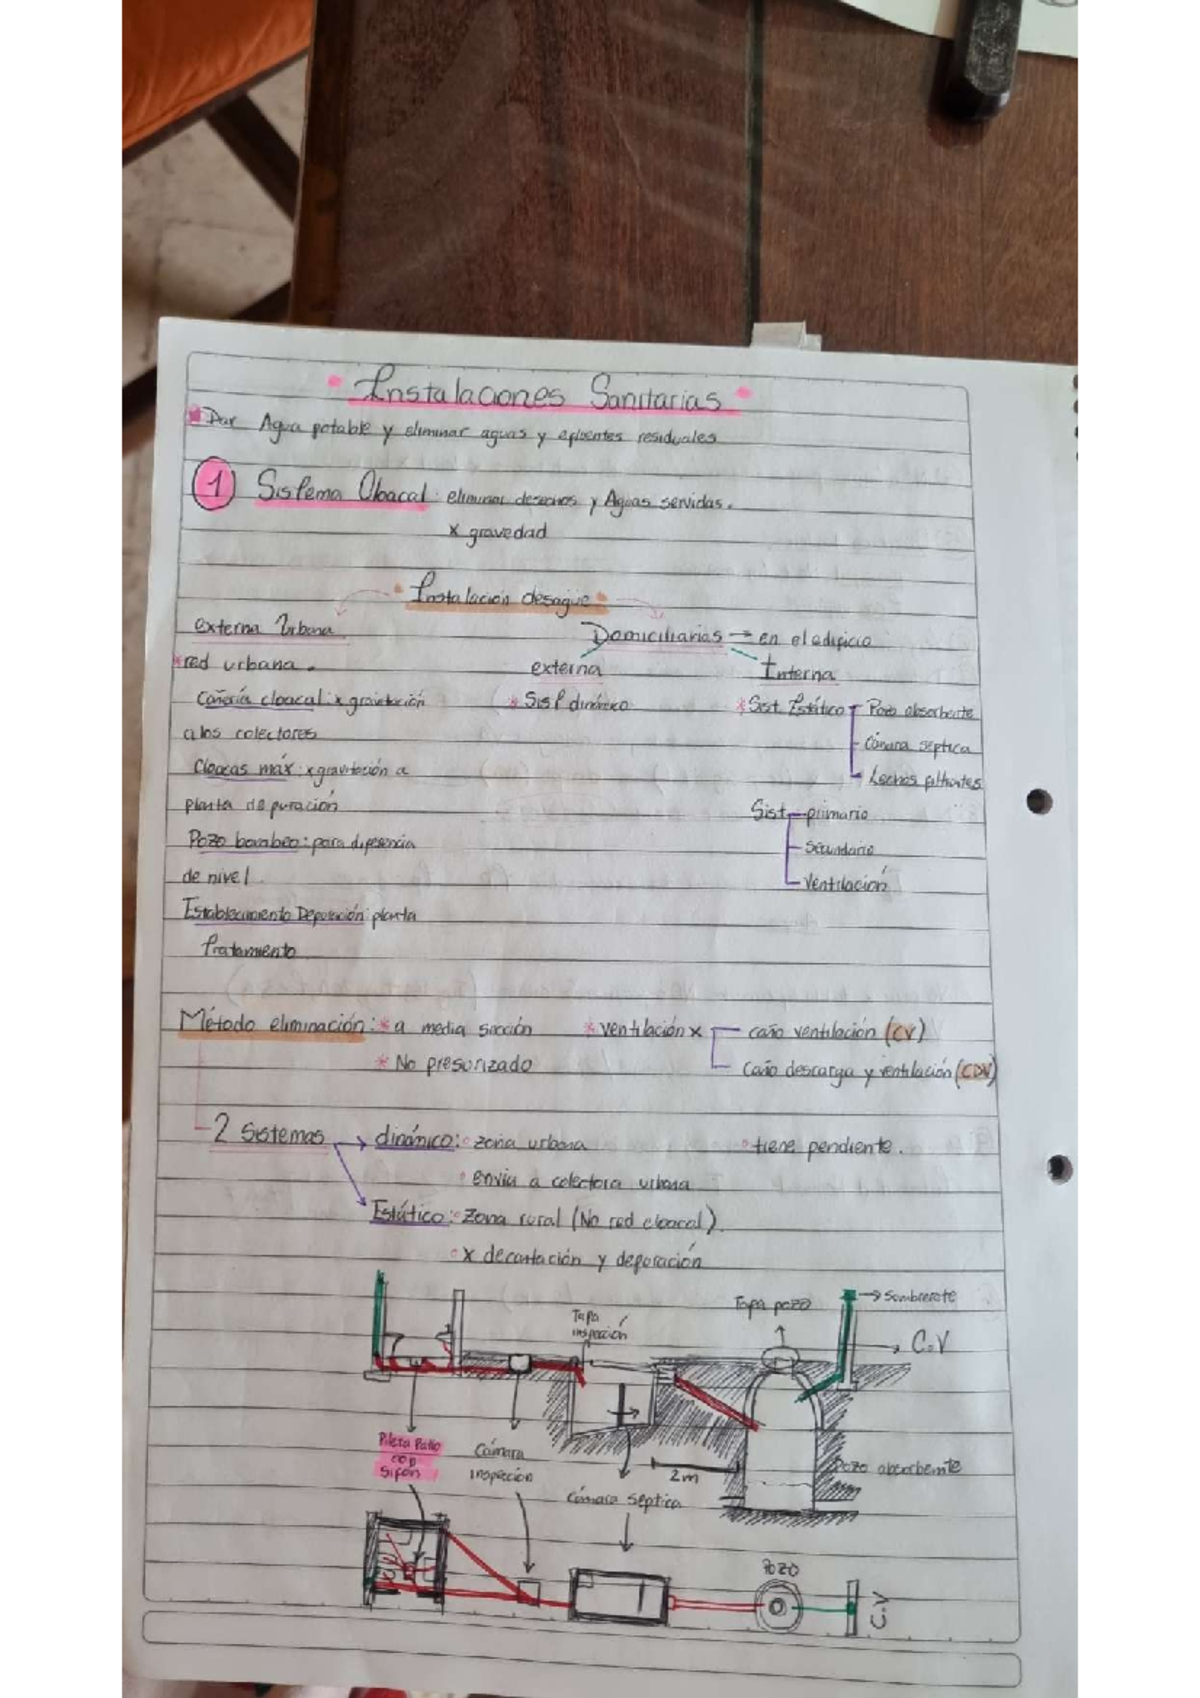 Instalaciones Sanitarias
Dar Agua potable y eliminar aguas y efluentes residuales
1 Sistema Cloacal: eliminar desechos y Aguas servidas.
x gravedad
Instalación desague
externa Urbana
Domiciliarias → en el edificio
* red urbana.
externa
Interna
Cañería cloacal: x gravitación
* Sist dinámico
* Sist. Estático
Pozo absorbente
a los colectores
Cámara séptica
Cloacas máx: x gravitación a
Lechos filtrantes
planta depuración
Sist
primario
Pozo bombeo: para diferencia
Secundario
de nivel
Ventilación
Establecimiento Depuración: planta
Tratamiento
Método eliminación: * a media sección
* ventilación x
caño ventilación (CV)
* No presurizado
Caño descarga y ventilación (CDV)
2 Sistemas
→ dinámico: zona urbana
tiene pendiente.
envia a colectora urbana
Estático: Zona rural (No red cloacal)
x decantación y deporación
Tapa inspección
Tapa pozo
→ Sombrerete
→ C.V
Pileta Patio
con
Sifón
Cámara
inspección
2m
Pozo absorbente
Cámara séptica
POZO
C.V